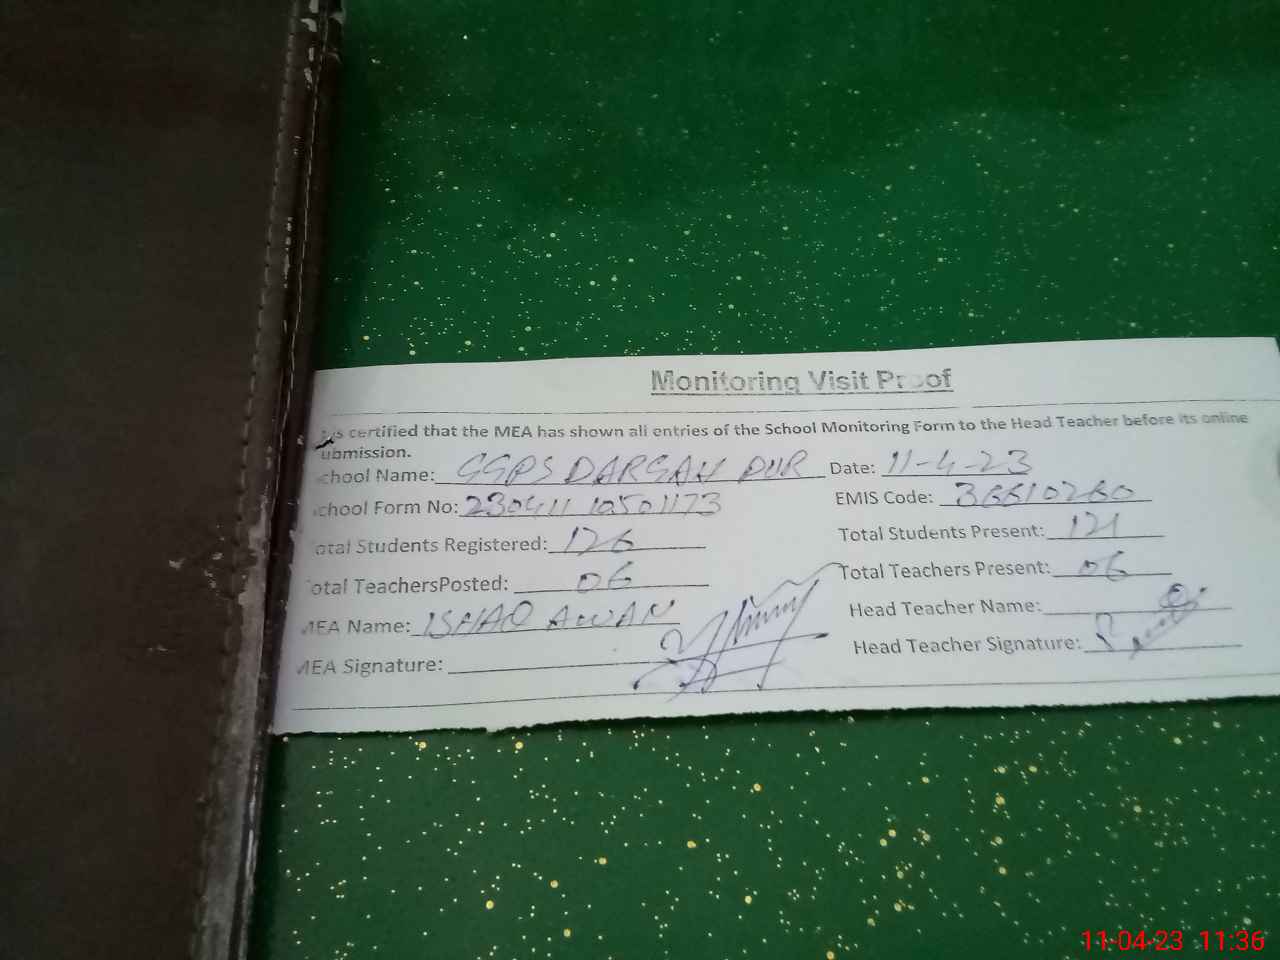 Monitoring Visit Proof
is certified that the MEA has shown all entries of the School Monitoring Form to the Head Teacher before its online
ubmission.
chool Name: GGPS DARGAH PUR Date: 11-4-23
chool Form No: 23041110501173 EMIS Code: 36610260
otal Students Registered: 126 Total Students Present: 121
otal TeachersPosted: 06 Total Teachers Present: 06
MEA Name: ISHAQ AWAN Head Teacher Name:
MEA Signature: Head Teacher Signature:
11-04-23 11:36